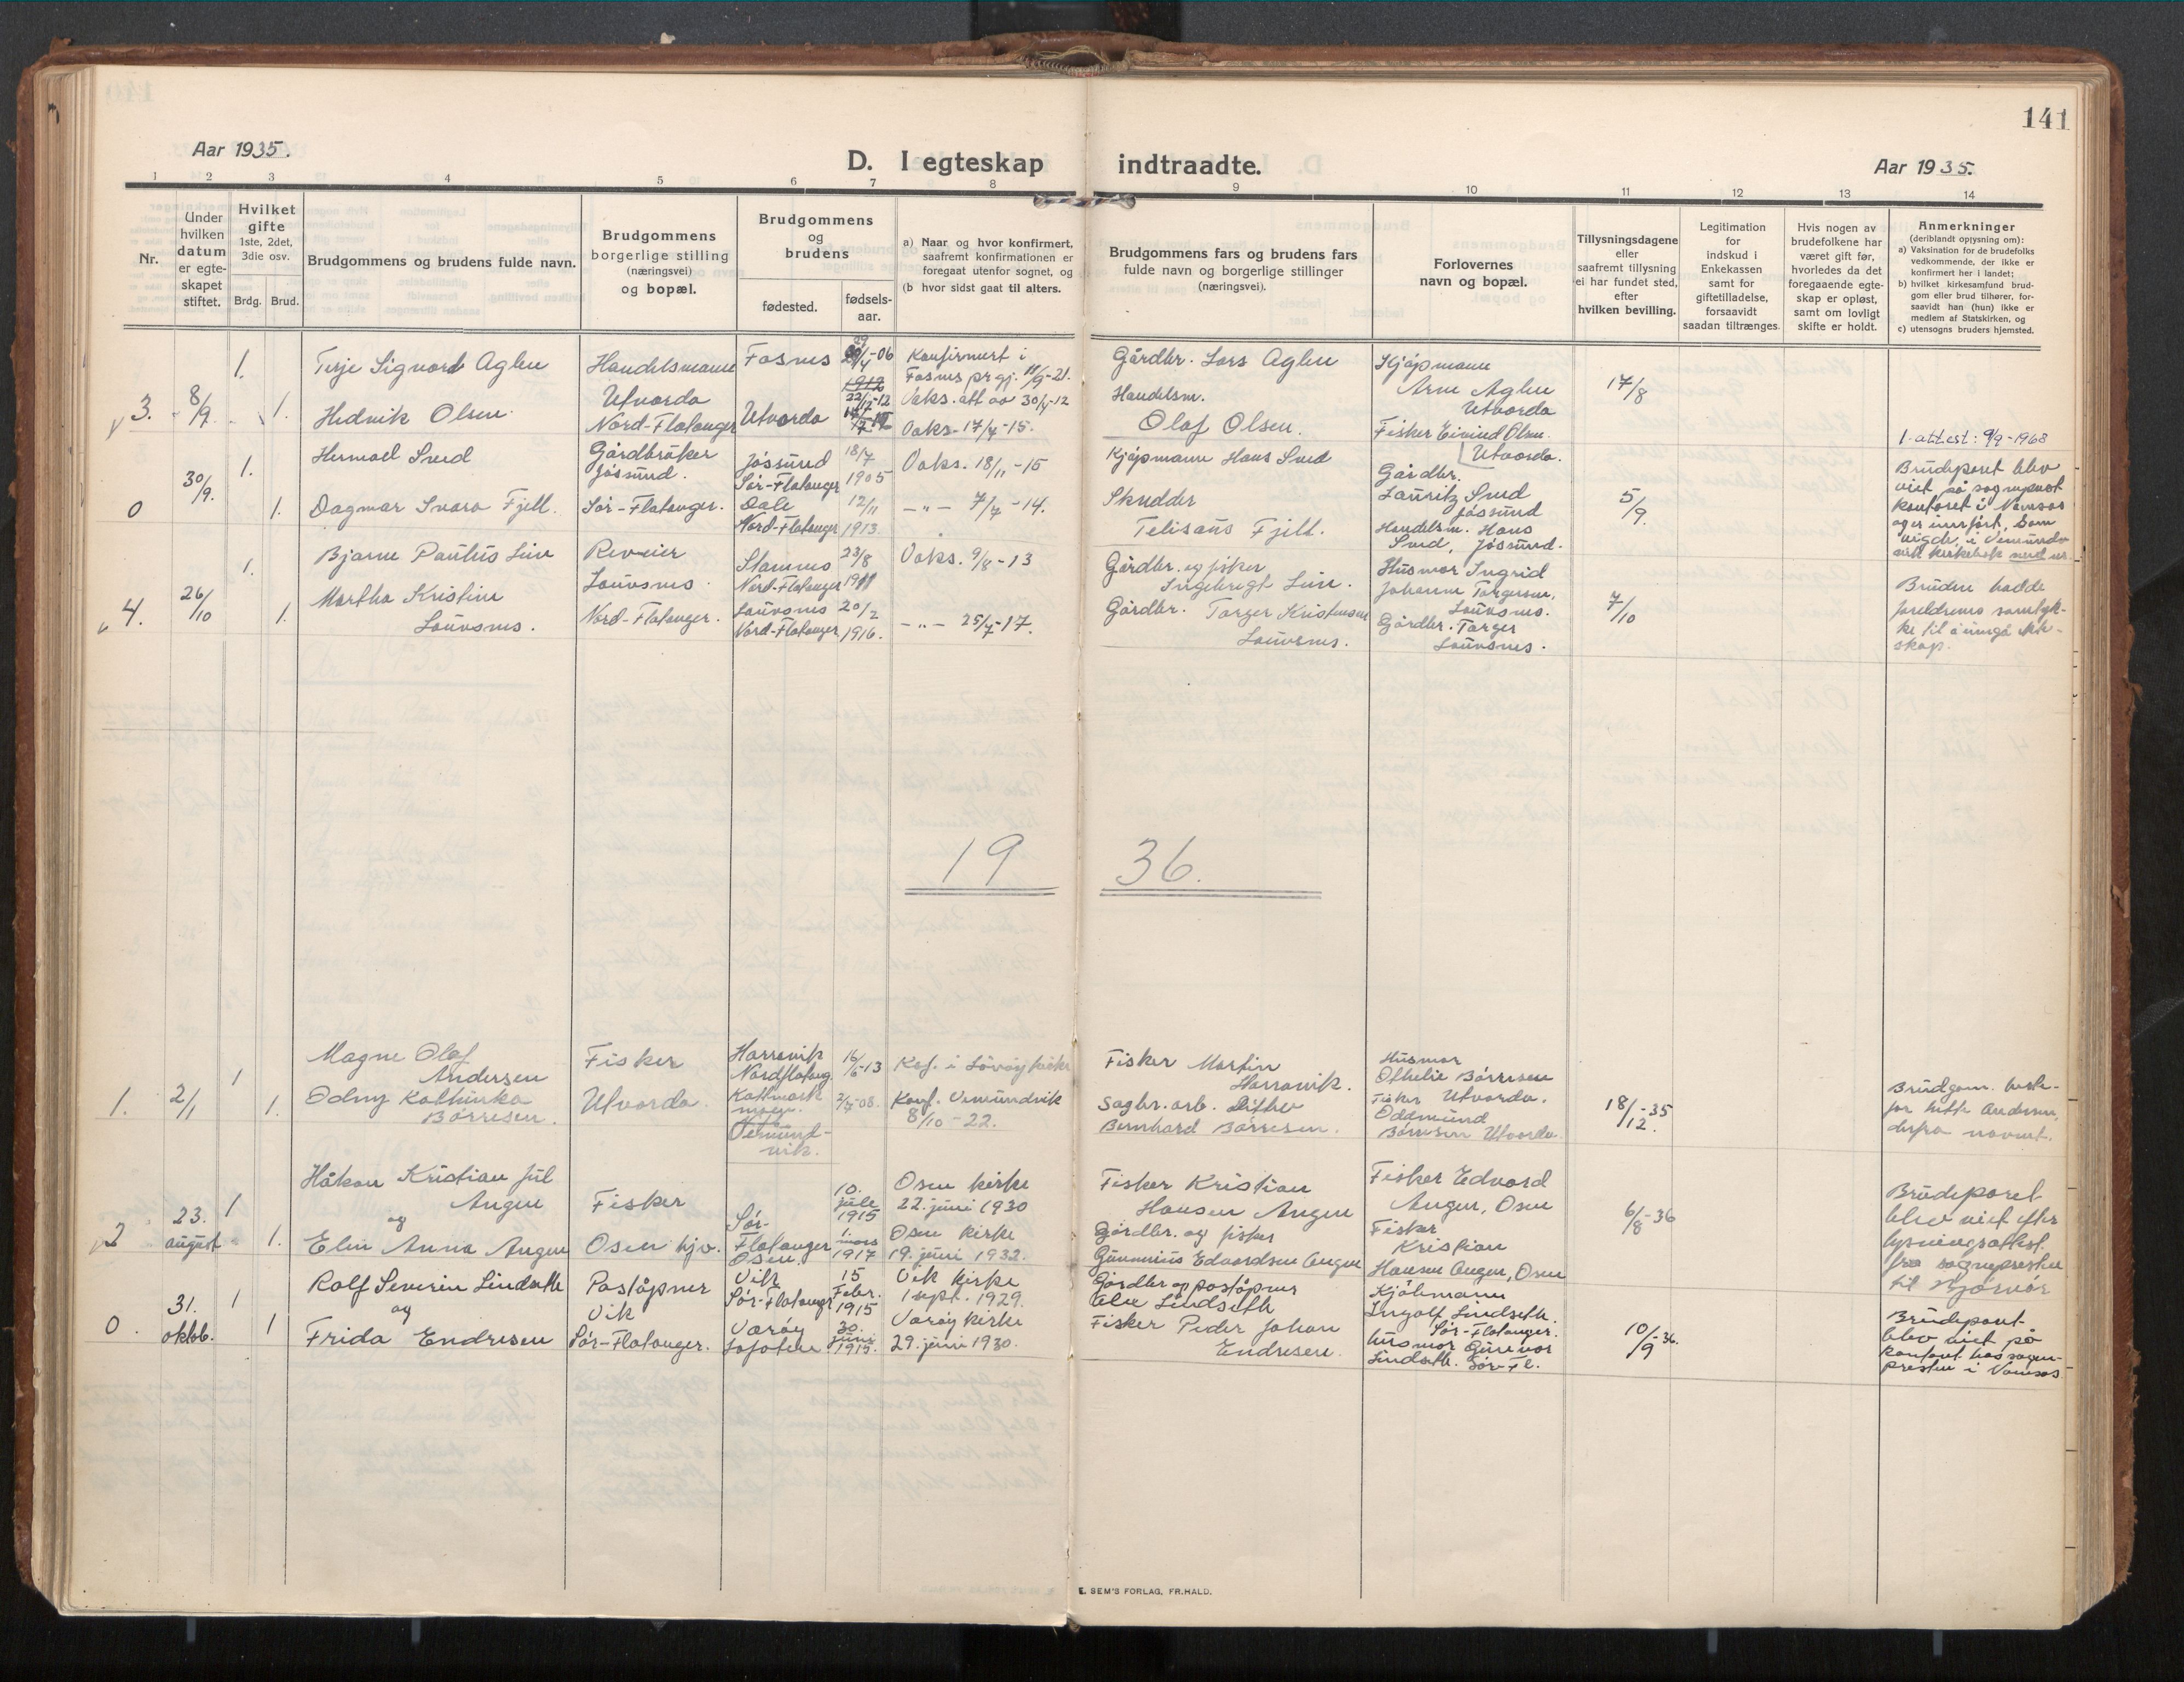 141
Aar 1935.
D. I egteskap indtraadte.
Aar 1935.
1 2 3 4 5 6 7 8 9 10 11 12 13 14
Nr.
Under
hvilken
datum
er egte-
skapet
stiftet.
Hvilket
gifte
1ste, 2det,
3die osv.
Brdg. Brud.
Brudgommens og brudens fulde navn.
Brudgommens
borgerlige stilling
(næringsvei)
og bopæl.
Brudgommens
og
brudens
fødested.
fødsels-
aar.
a) Naar og hvor konfirmert,
saafremt konfirmationen er
foregaat utenfor sognet, og
(b hvor sidst gaat til alters.
Brudgommens fars og brudens fars
fulde navn og borgerlige stillinger
(næringsvei).
Forlovernes
navn og bopæl.
Tillysningsdagene
eller
saafremt tillysning
ei har fundet sted,
efter
hvilken bevilling.
Legitimation
for
indskud i
Enkekassen
samt for
giftetilladelse,
forsaavidt
saadan tiltrænges.
Hvis nogen av
brudefolkene har
været gift før,
hvorledes da det
foregaaende egte-
skap er opløst,
samt om lovligt
skifte er holdt.
Anmerkninger
(deriblandt opysning om):
a) Vaksination for de brudefolks
vedkommende, der ikke er
konfirmert her i landet;
b) hvilket kirkesamfund brud-
gom eller brud tilhører, for-
saavidt han (hun) ikke er
medlem af Statskirken, og
c) utensogns bruders hjemsted.
3.
8/9.
1.
1.
Terje Sigvard Aglen
Hedvik Olsen.
Handelsmann
Utvorda
Nord-Flatanger
Fosnes
Utvorda
29/4-06
1912
22/12-12
Konfirmert i
Fosnes prgj. 11/9-21.
Vaks. att av 30/4-12
Vaks. 17/7-15.
Gårdbr. Lars Aglen
Handelsm.
Olaf Olsen.
Kjøpmann
Arne Aglen
Utvorda
Fisker Eivind Olsen.
Utvorda.
17/8
1. attest: 9/9-1968
0
30/9.
1.
1.
Hermod Sved
Dagmar Svara Fjell.
Gårdbruker
Jøssund.
Sør-Flatanger.
Jøssund
Sør-Flatanger
Dale
Nord-Flatanger
18/7
1905
12/11
1913.
Vaks. 18/11-15
-"- 7/7-14.
Kjøpmann Hans Sved
Skredder
Telisaus Fjell.
Gårdbr.
Lauritz Sved
Jøssund
Handelsm. Hans
Sved, Jøssund.
5/9.
Brudeparet blev
viet på sogneprest
kontoret i Namsos
og er innført, som
vigde, i Vemundv
vik kirkebok med nr.
4.
26/10
1.
1.
Bjarne Paulus Lein
Martha Kristine
Lauvsnes.
Reveier
Lauvsnes.
Nord-Flatanger.
Stamnes
Nord-Flatanger
Lauvsnes
Nord-Flatanger
23/8
1911
20/2
1916.
Vaks. 9/8-13
-"- 25/7-17.
Gårdbr. og fisker
Ingebrigt Lein.
Gårdbr. Torger Kristensen
Lauvsnes.
Husmor Ingrid
Johanne Torgersen,
Lauvsnes.
Gårdbr. Torger
Lauvsnes.
7/10
Bruden hadde
foreldrenes samtyk-
ke til å inngå ekte-
skap.
19 36.
1.
2/1
1
1.
Magne Olaf
Andersen
Odny Kathinka
Børresen.
Fisker
Utvorda.
Harsvik
Nordflatang.
Vemund-
vik.
16/6-13
2/7-08.
Kof. i Løvøy kirke
Konf. Vemundvik
8/10-22.
Fisker Martin
Harsvik.
Sagbr. arb. Ditlev
Bernhard Børresen.
Husmor
Othelie Børresen
Fisker Utvorda.
Oddmund
Børresen Utvorda
18/12-35.
Brudgom. beste-
far hette Andersen,
derfra navnet.
2
23.
august
1
1.
Håkon Kristian Jul
Angen
og
Elen Anna Angen
Fisker
Osen hjv.
Sør-
Flatanger
Osen.
10.
juli
1915
1.
mars
1917
Osen kirke
22. juni 1930
Osen kirke
19. juni 1932.
Fisker Kristian
Hansen Angen
Gårdbr. og fisker
Gunnerius Edvardsen Angen
Fisker Edvard
Angen, Osen
Fisker
Kristian
Hansen Angen, Osen
6/8-36
Brudeparet
blev viet efter
lysningsattest
fra sognepresten
til Bjørnør
0.
31.
oktob.
1
1
Rolf Severin Lindseth
og
Frida Endresen
Poståpner
Vik
Sør-Flatanger.
Vik
Sør-Flatanger
Værøy
Lofoten
15
Febr.
1915
30.
juni
1915.
Vik kirke
1 sept. 1929.
Værøy kirke
29. juni 1930.
Gårdbr og poståpner
Elev Lindseth
Fisker Peder Johan
Endresen.
Kjøbmann
Ingolf Lindseth.
Sør-Flatanger.
husmor Gunvor
Lindseth. Sør-Fl.
10/9-36.
Brudeparet
blev viet på
kontoret hos sogne-
presten i Namsos
E. SEM'S FORLAG, FR.HALD.